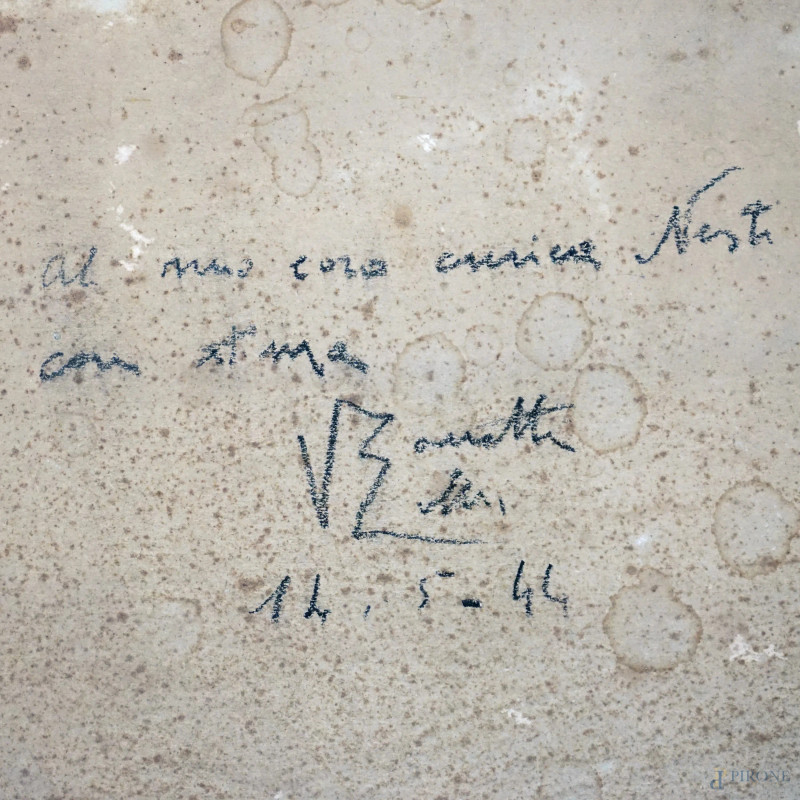 al mio caro amico Nesti
con stima
V Zanetti
14. 5 - 44
PIRONE